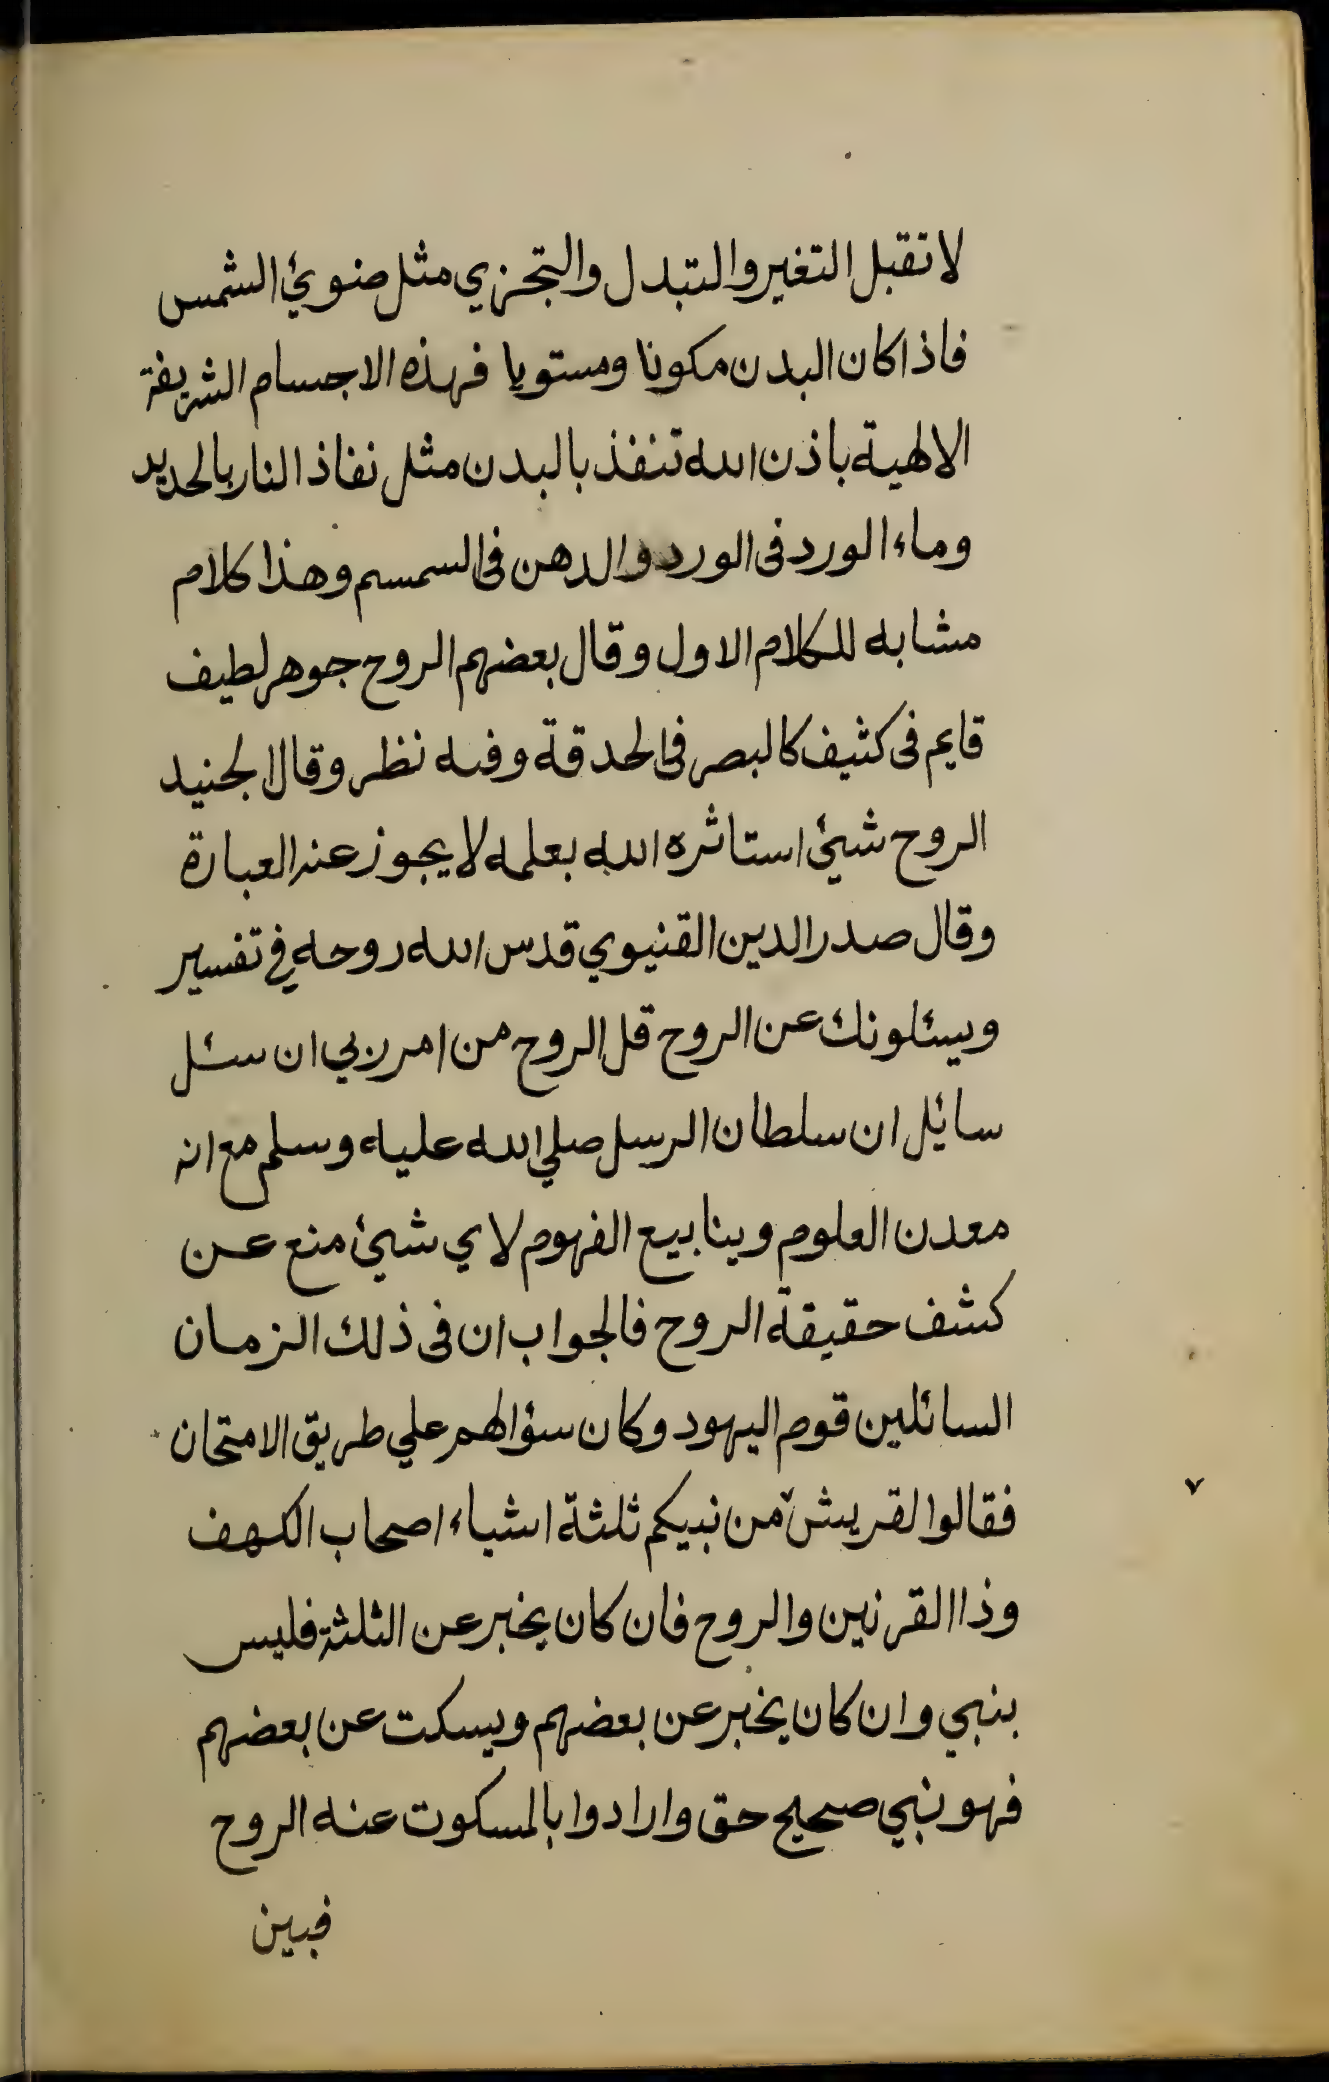 لا تقبل التغير والتبدل والتجزي مثل ضوئ الشمس
فاذا كان البدن مكونا ومستويا فهذه الاجسام الشريفة
الالهية باذن الله تنفذ بالبدن مثل نفاذ النار بالحديد
وماء الورد فى الورد والدهن فى السمسم وهذا كلام
مشابه للكلام الاول وقال بعضهم الروح جوهر لطيف
قايم فى كثيف كالبصر فى الحدقة وفيه نظر وقال الجنيد
الروح شيئ استاثره الله بعلمه لا يجوز عنه العبارة
وقال صدر الدين القنيوي قدس الله روحه في تفسير
ويسئلونك عن الروح قل الروح من امر ربي ان سئل
سائل ان سلطان الرسل صلي الله عليه وسلم مع انه
معدن العلوم وينابيع الفهوم لاي شيئ منع عن
كشف حقيقة الروح فالجواب ان فى ذلك الزمان
السائلين قوم اليهود وكان سؤالهم علي طريق الامتحان
فقالوا لقريش من نبيكم ثلثة اشياء اصحاب الكهف
وذا القرنين والروح فان كان يخبر عن الثلثة فليس
بنبي وان كان يخبر عن بعضهم ويسكت عن بعضهم
فهو نبي صحيح حق وارادوا بالمسكوت عنه الروح
فبين